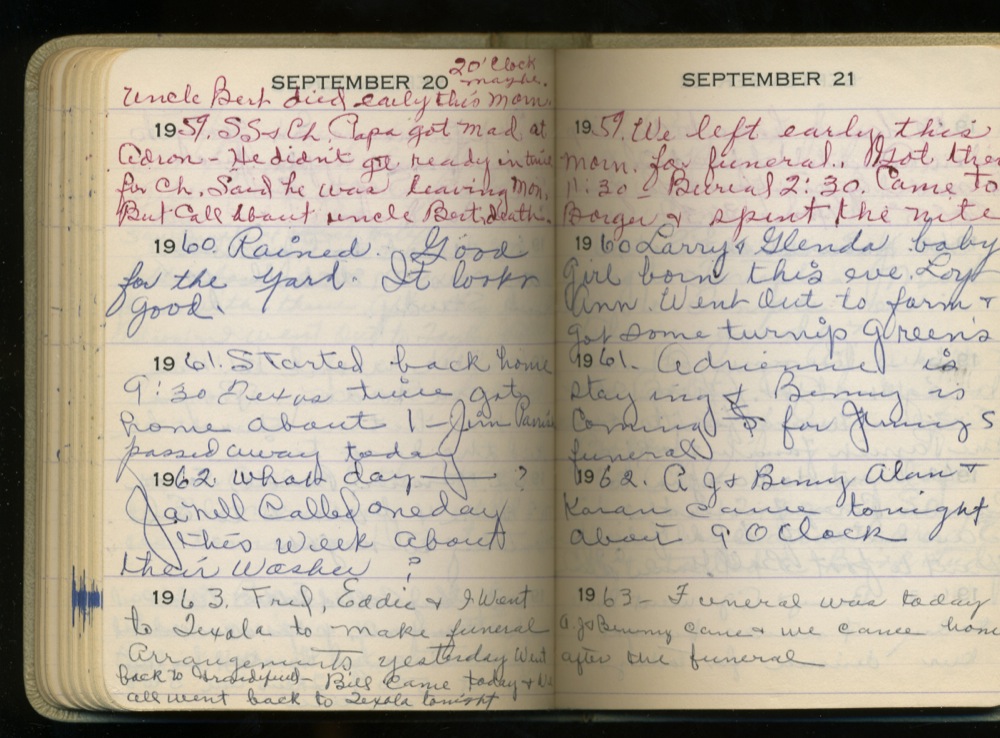 SEPTEMBER 20
20'Clock
maybe.
Uncle Bert died early this morn.
1959. SS & Ch. Papa got mad at
Adron - He didn't get ready in time
for Ch. Said he was leaving Mon.
But Call about uncle Bert, death.
1960. Rained. Good
for the yard. It looks
good.
1961. Started back home
9:30 Texas time got
home about 1 - Jim
passed away today
1962 what day — ?
Janell Called oneday
this week about
their Washer ?
1963. Fred, Eddie & I Went
to Texola to make funeral
Arrangements yesterday Went
back to - Bill Came today & We
all went back to Texola tonight
SEPTEMBER 21
1959. We left early this
morn. for funeral. Got there
11:30 - Burial 2:30. Came to
Borger & spent the nite
1960 Larry & Glenda baby
girl born this eve. Lory
Ann. Went Out to farm &
got some turnip Greens
1961. Adrienne is
staying & Benny is
Coming for Jimmy S
funeral
1962. A J & Benny Alan &
Karan came tonight
about 9 OClock
1963 - Funeral was today
A.J & Benny came & we came home
after the funeral